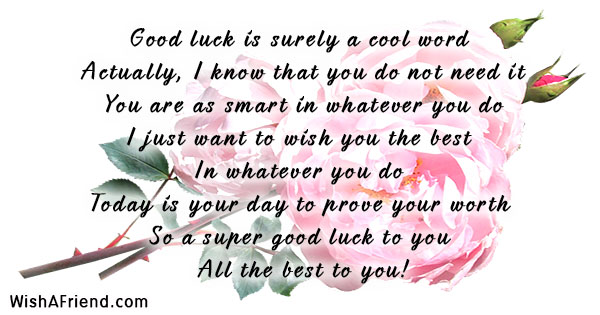 Good luck is surely a cool word
Actually, I know that you do not need it
You are as smart in whatever you do
I just want to wish you the best
In whatever you do
Today is your day to prove your worth
So a super good luck to you
All the best to you!
WishAFriend.com